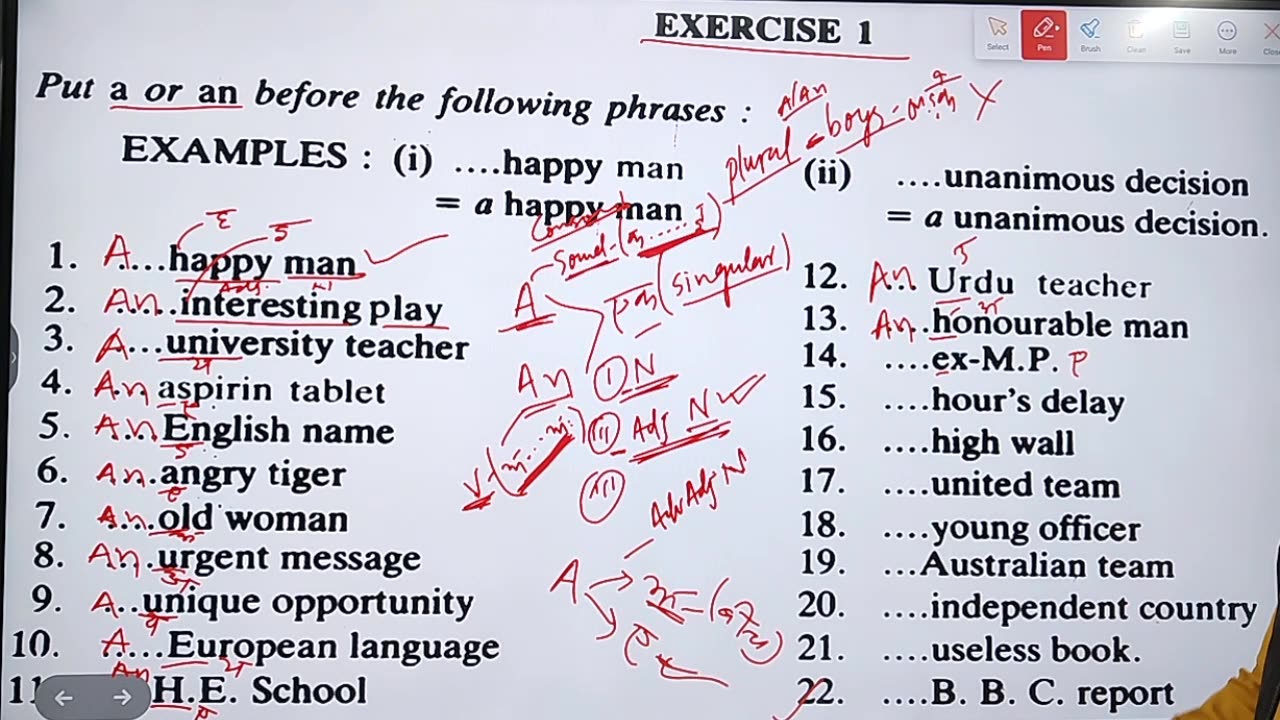 EXERCISE 1
Select Pen Brush Clean Save More Close
Put a or an before the following phrases :
A/An
plural - boys
EXAMPLES : (i) ....happy man
= a happy man
(ii) ....unanimous decision
= a unanimous decision.
1. A....happy man
2. An...interesting play
3. A...university teacher
4. An aspirin tablet
5. An..English name
6. An.angry tiger
7. An...old woman
8. An.urgent message
9. A..unique opportunity
10. A....European language
11 An H.E. School
Sound
A
(singular)
An
I N
II Adj N
III
Adv Adj N
A
12. An.. Urdu teacher
13. An..honourable man
14. ....ex-M.P.
15. ....hour's delay
16. ....high wall
17. ....united team
18. ....young officer
19. ...Australian team
20. ....independent country
21. ....useless book.
22. ....B. B. C. report